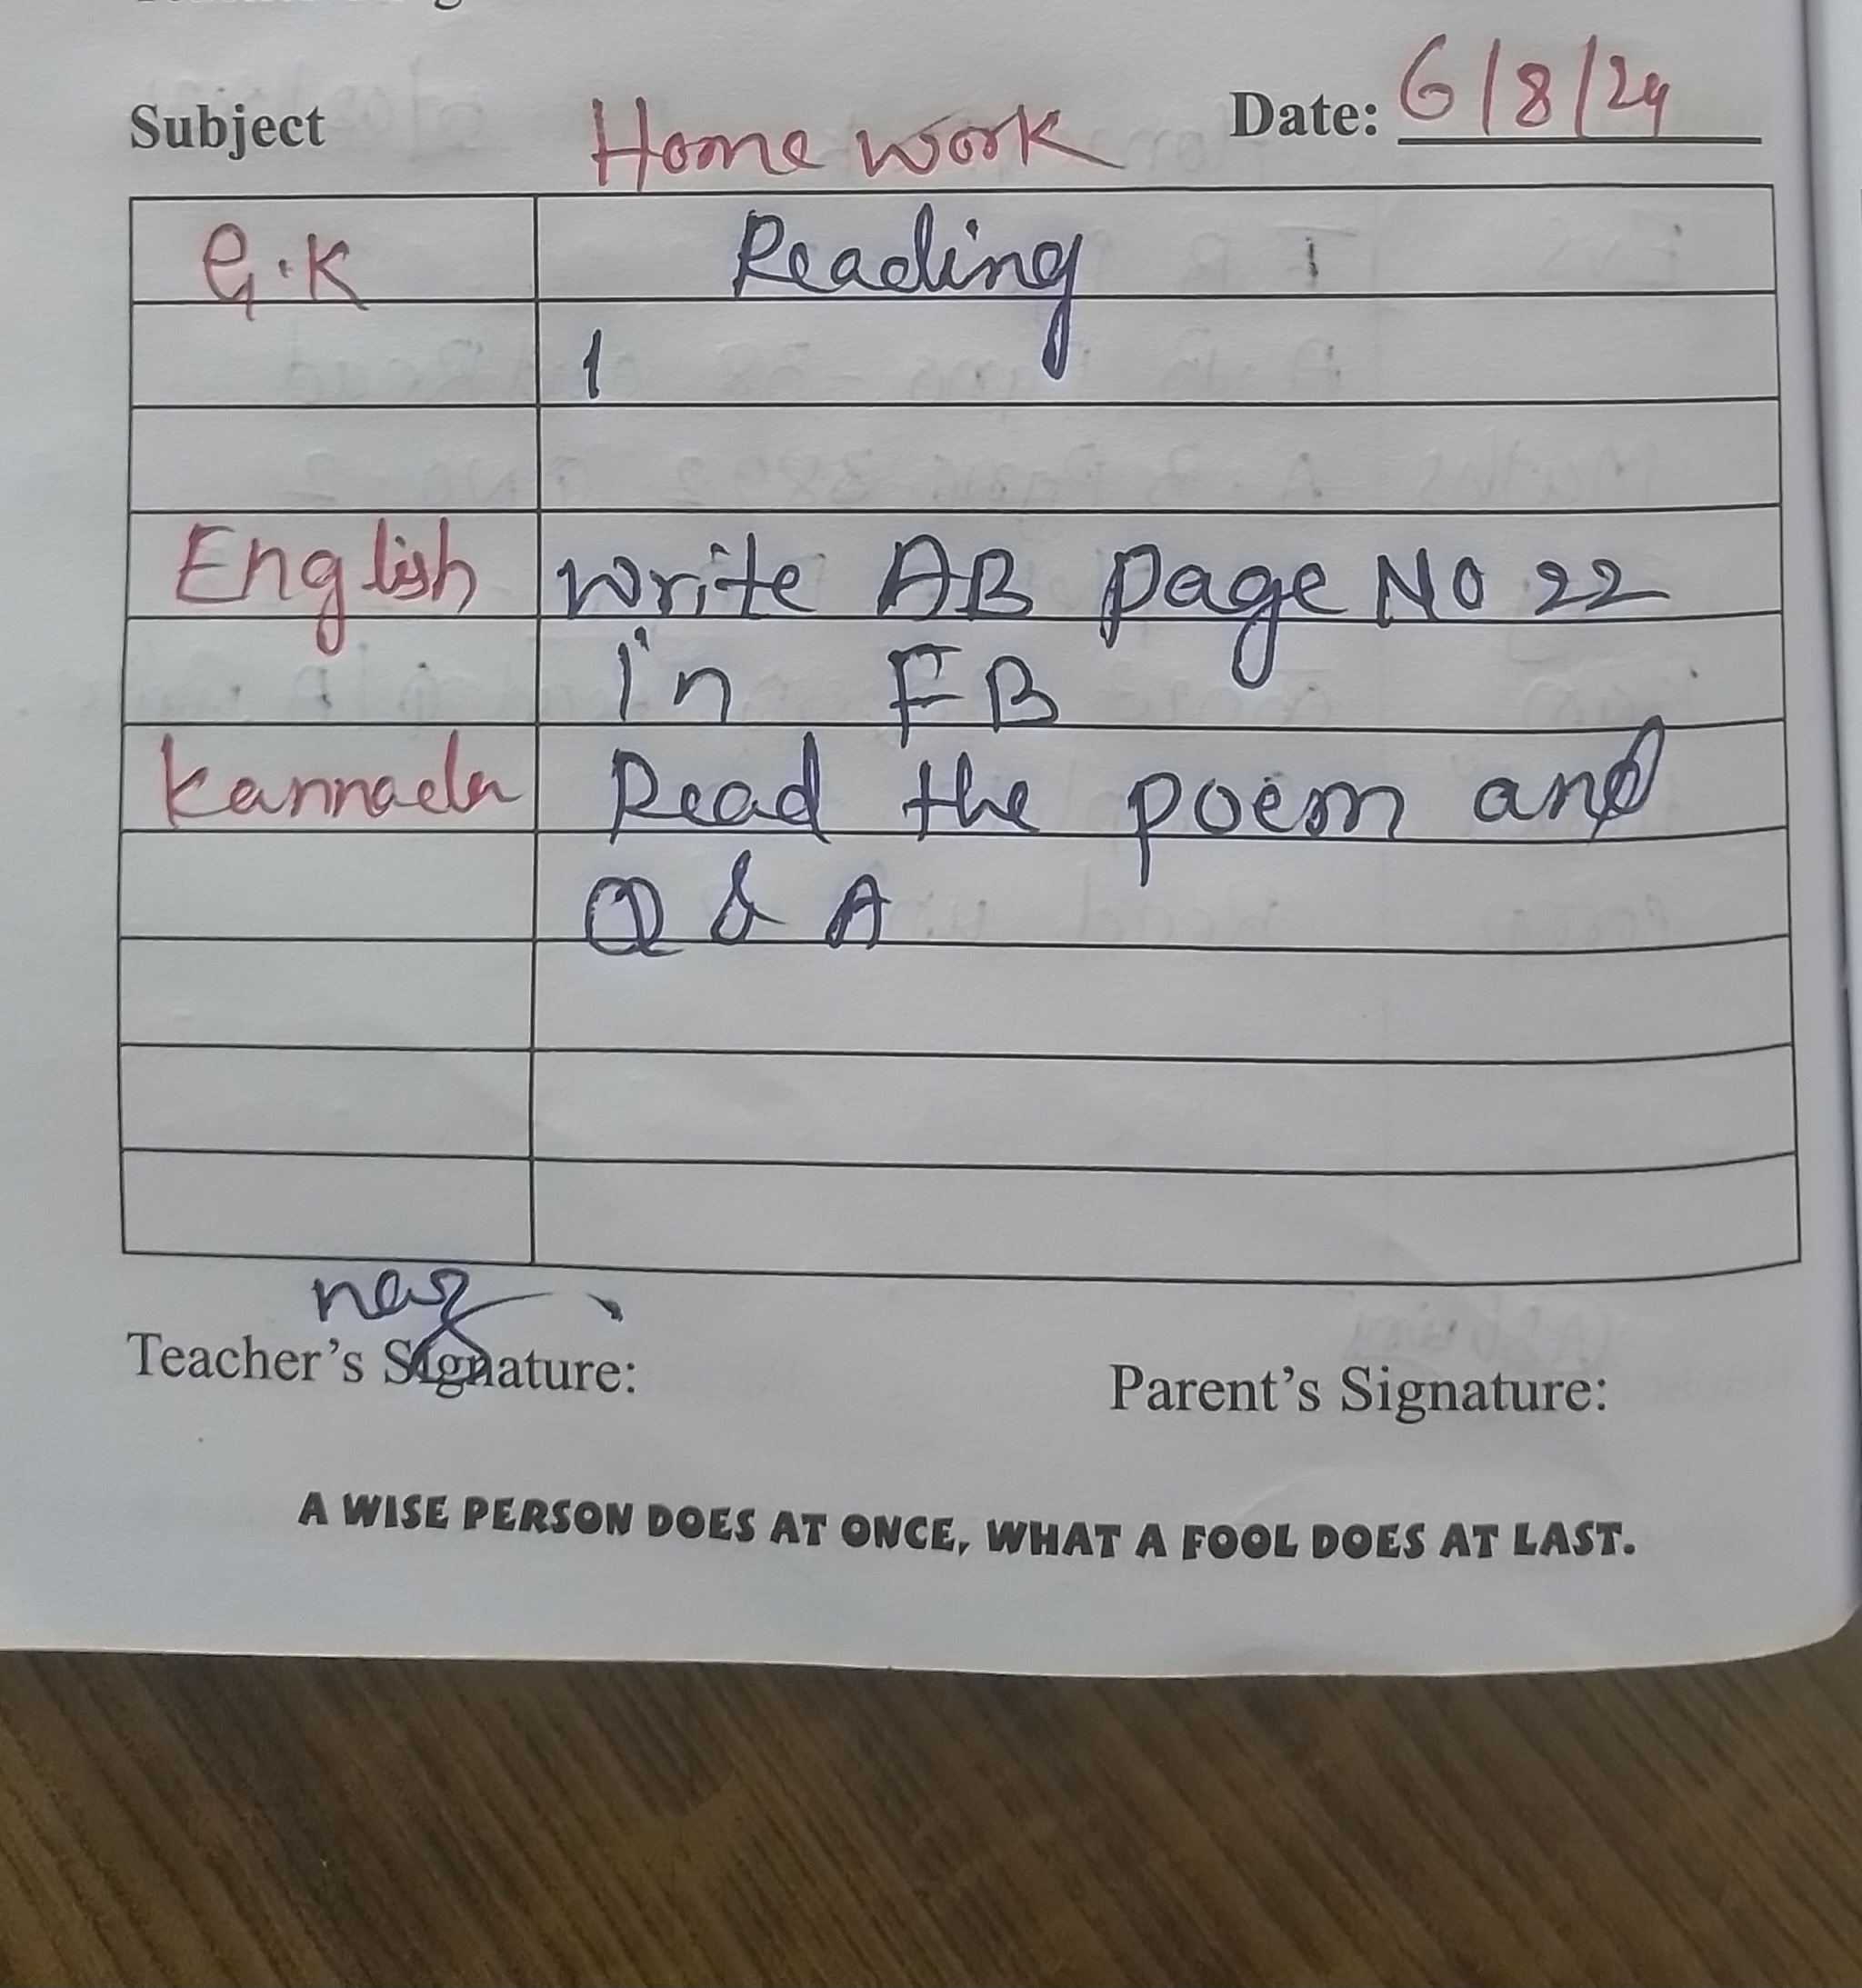 Subject Home work Date: 6/8/24
G.K Reading
1
English Write AB page No 22
in FB
Kannada Read the poem and
Q & A
Teacher's Signature:
Parent's Signature:
A WISE PERSON DOES AT ONCE, WHAT A FOOL DOES AT LAST.